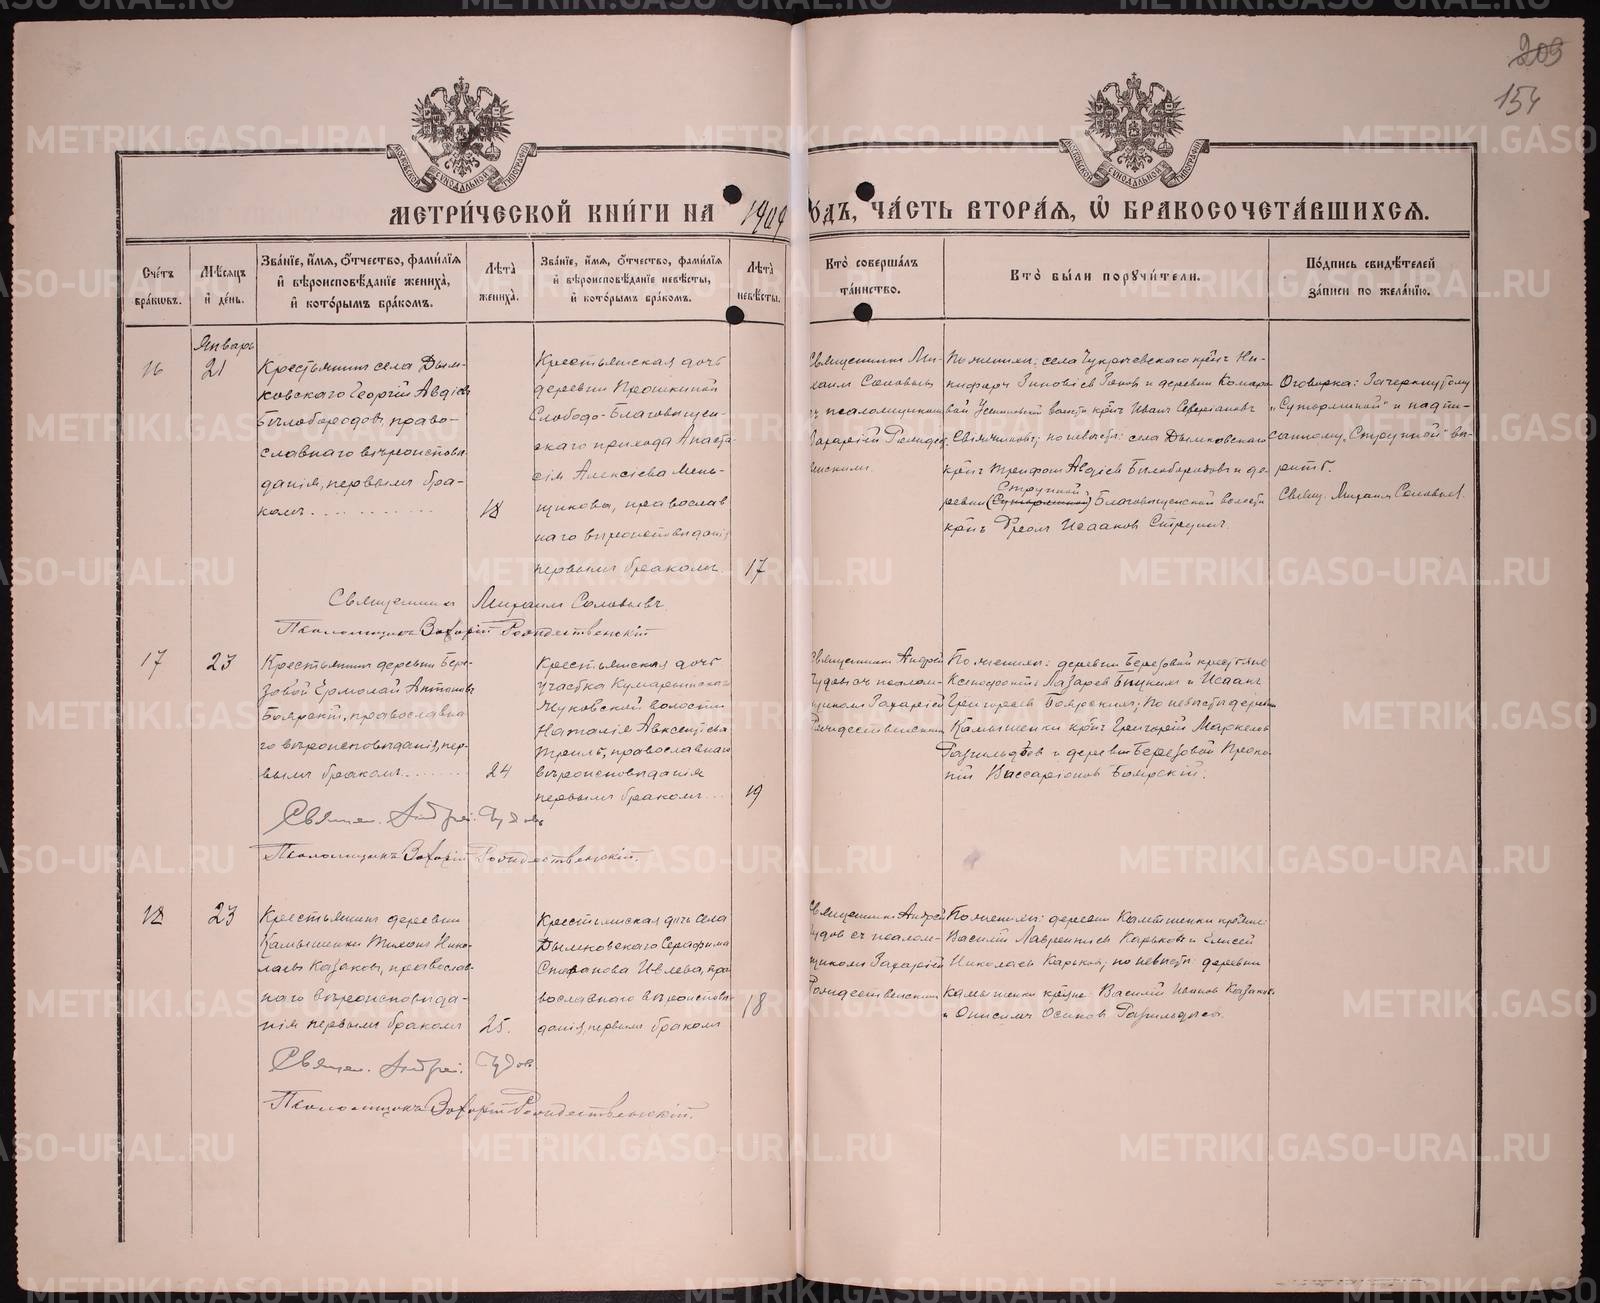 209
154
МОСКОВСКОЙ СѴНОДАЛЬНОЙ ТИПОГРАФІИ
МОСКОВСКОЙ СѴНОДАЛЬНОЙ ТИПОГРАФІИ
МЕТРИЧЕСКОЙ КНИГИ НА 1909 ГОДЪ, ЧАСТЬ ВТОРАЯ, Ѡ БРАКОСОЧЕТАВШИХСЯ.
Счетъ браковъ.
Мѣсяцъ и день.
Званіе, имя, отчество, фамилія
и вѣроисповѣданіе жениха,
и которымъ бракомъ.
Лѣта жениха.
Званіе, имя, отчество, фамилія
и вѣроисповѣданіе невѣсты,
и которымъ бракомъ.
Лѣта невѣсты.
Кто совершалъ
таинство.
Кто были поручители.
Подпись свидѣтелей
записи по желанію.
16
Январь
21
Крестьянинъ села Дым-
ковскаго Георгій Авдіевъ
Бѣлобородовъ, право-
славнаго вѣроисповѣ-
данія, первымъ бра-
комъ
18
Крестьянская дочь
деревни Прошкиной
Слободо-Благовѣщен-
скаго прихода Анаста-
сія Алексіева Мень-
щикова, православ
наго вѣроисповѣданія
первымъ бракомъ.
17
Священникъ Ми-
хаилъ Соловьевъ
съ псаломщикомъ
Захаріей Рождест-
венскимъ.
По женихѣ: села Чукреевскаго кр-нъ Ни-
кифоръ Зиновіевъ и деревни Комаро-
вой волости кр-нъ Иванъ Северіановъ
по невѣстѣ: села Дымковскаго
кр-нъ Трифонъ Авдіевъ Бѣлобородовъ и де-
Струнной
ревни (Сутормской) Благовѣщенской волости
кр-нъ Исааковъ Струнинъ.
Оговорка: Зачеркнутому
и надпи-
санному „Струнной" вѣ-
рить.
Свящ. Михаилъ Соловьев.
Священникъ Михаилъ Соловьевъ.
Псаломщикъ Захарій Рождественскій
17
23
Крестьянинъ деревни Бере-
зовой Ермолай Антоновъ
Боярскій, православна
го вѣроисповѣданія, пер-
вымъ бракомъ
24
Крестьянская дочь
участка
Чуковской волости
Наталія Авксентіева
православнаго
вѣроисповѣданія
первымъ бракомъ
19
Священникъ Андрей
Чудовъ съ псалом-
щикомъ Захаріей
Рождественскимъ
По женихѣ: деревни Березовой крестьяне
Ксенофонтъ Лазаревъ и Исаакъ
Григорьевъ Боярскіе; по невѣстѣ: деревни
Камышенки кр-нъ Григорій Маркеловъ
и деревни Березовой Проко-
пій Виссаріоновъ Боярскій.
Священ. Андрей Чудовъ
Псаломщикъ Захарій Рождественскій.
18
23
Крестьянинъ деревни
Камышенки Тихонъ Нико-
лаевъ Казаковъ, православ-
наго вѣроисповѣда-
нія первымъ бракомъ
25.
Крестьянская дочь села
Дымковскаго Серафима
Стефанова Ивлева, пра
вославнаго вѣроисповѣ-
данія, первымъ бракомъ
18
Священникъ Андрей
Чудовъ съ псалом-
щикомъ Захаріей
Рождественскимъ
По женихѣ: деревни Камышенки кр-яне:
Василій Лаврентьевъ Карьковъ и Елисей
Николаевъ Карьковъ; по невѣстѣ: деревни
Камышенки кр-яне Василій Ивановъ Казаковъ
и Онисимъ Осиповъ
Священ. Андрей Чудов.
Псаломщикъ Захарій Рождественскій.
METRIKI.GASO-URAL.RU